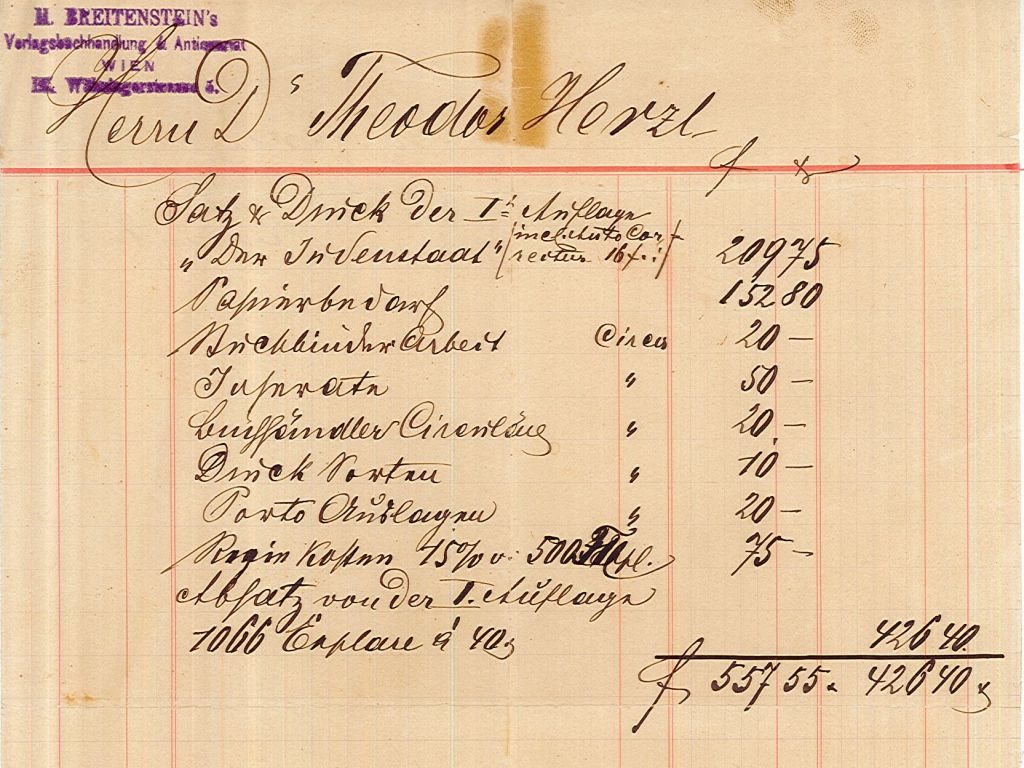 M. BREITENSTEIN's
Verlagsbuchhandlung & Antiquariat
WIEN
IX. Währingerstrasse 5.
Herrn Dr Theodor Herzl
f x
Satz & Druck der Ir Auflage
„Der Judenstaat" (incl. Auto Cor-
rectur 16 f.) 209 75
Papierbedarf 152 80
Buchbinder Arbeit Circa 20 —
Inserate " 50 —
Buchhändler Circuläre " 20 —
Druck Sorten " 10 —
Porto Auslagen " 20 —
Regie Kosten 15% v. 500 fl. 75 —
Absatz von der I. Auflage
1066 Explare à 40 x 426 40
f 557 55 x 426 40 x